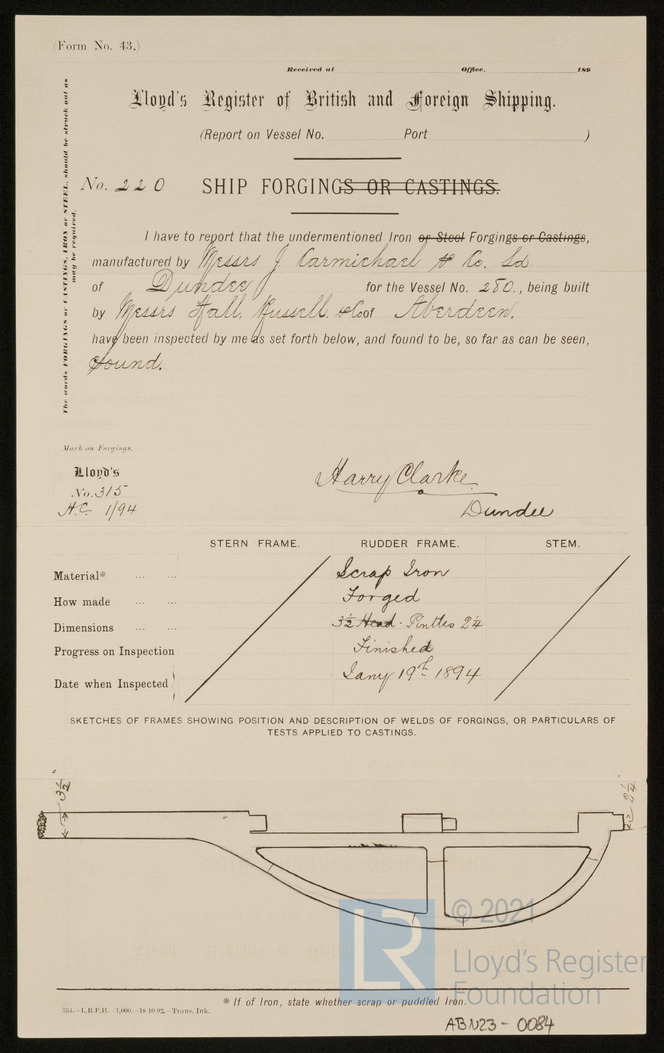 (Form No. 43.)
Received at Office, 189
Lloyd's Register of British and Foreign Shipping.
(Report on Vessel No. Port )
The words FORGINGS or CASTINGS, IRON or STEEL, should be struck out as
may be required.
No. 220 SHIP FORGINGS OR CASTINGS.
I have to report that the undermentioned Iron or Steel Forgings or Castings,
manufactured by Messrs J Carmichael & Co. Ld
of Dundee for the Vessel No. 280, being built
by Messrs Hall, Russell & Co of Aberdeen.
have been inspected by me as set forth below, and found to be, so far as can be seen,
Sound.
Mark on Forgings.
Lloyd's
No. 315
H.C. 1/94
Harry Clarke
Dundee
STERN FRAME. RUDDER FRAME. STEM.
Material* ... ... Scrap Iron
How made ... ... Forged
Dimensions ... ... 3½ Head - Pintles 2¼
Progress on Inspection Finished
Date when Inspected Jany 19th 1894
SKETCHES OF FRAMES SHOWING POSITION AND DESCRIPTION OF WELDS OF FORGINGS, OR PARTICULARS OF
TESTS APPLIED TO CASTINGS.
3½" 2¼"
© 2021
LR Lloyd's Register
Foundation
* If of Iron, state whether scrap or puddled Iron.
554.—L.R.P.H. 1,000.—18.10.92.—Trans. Ink.
ABN23-0084